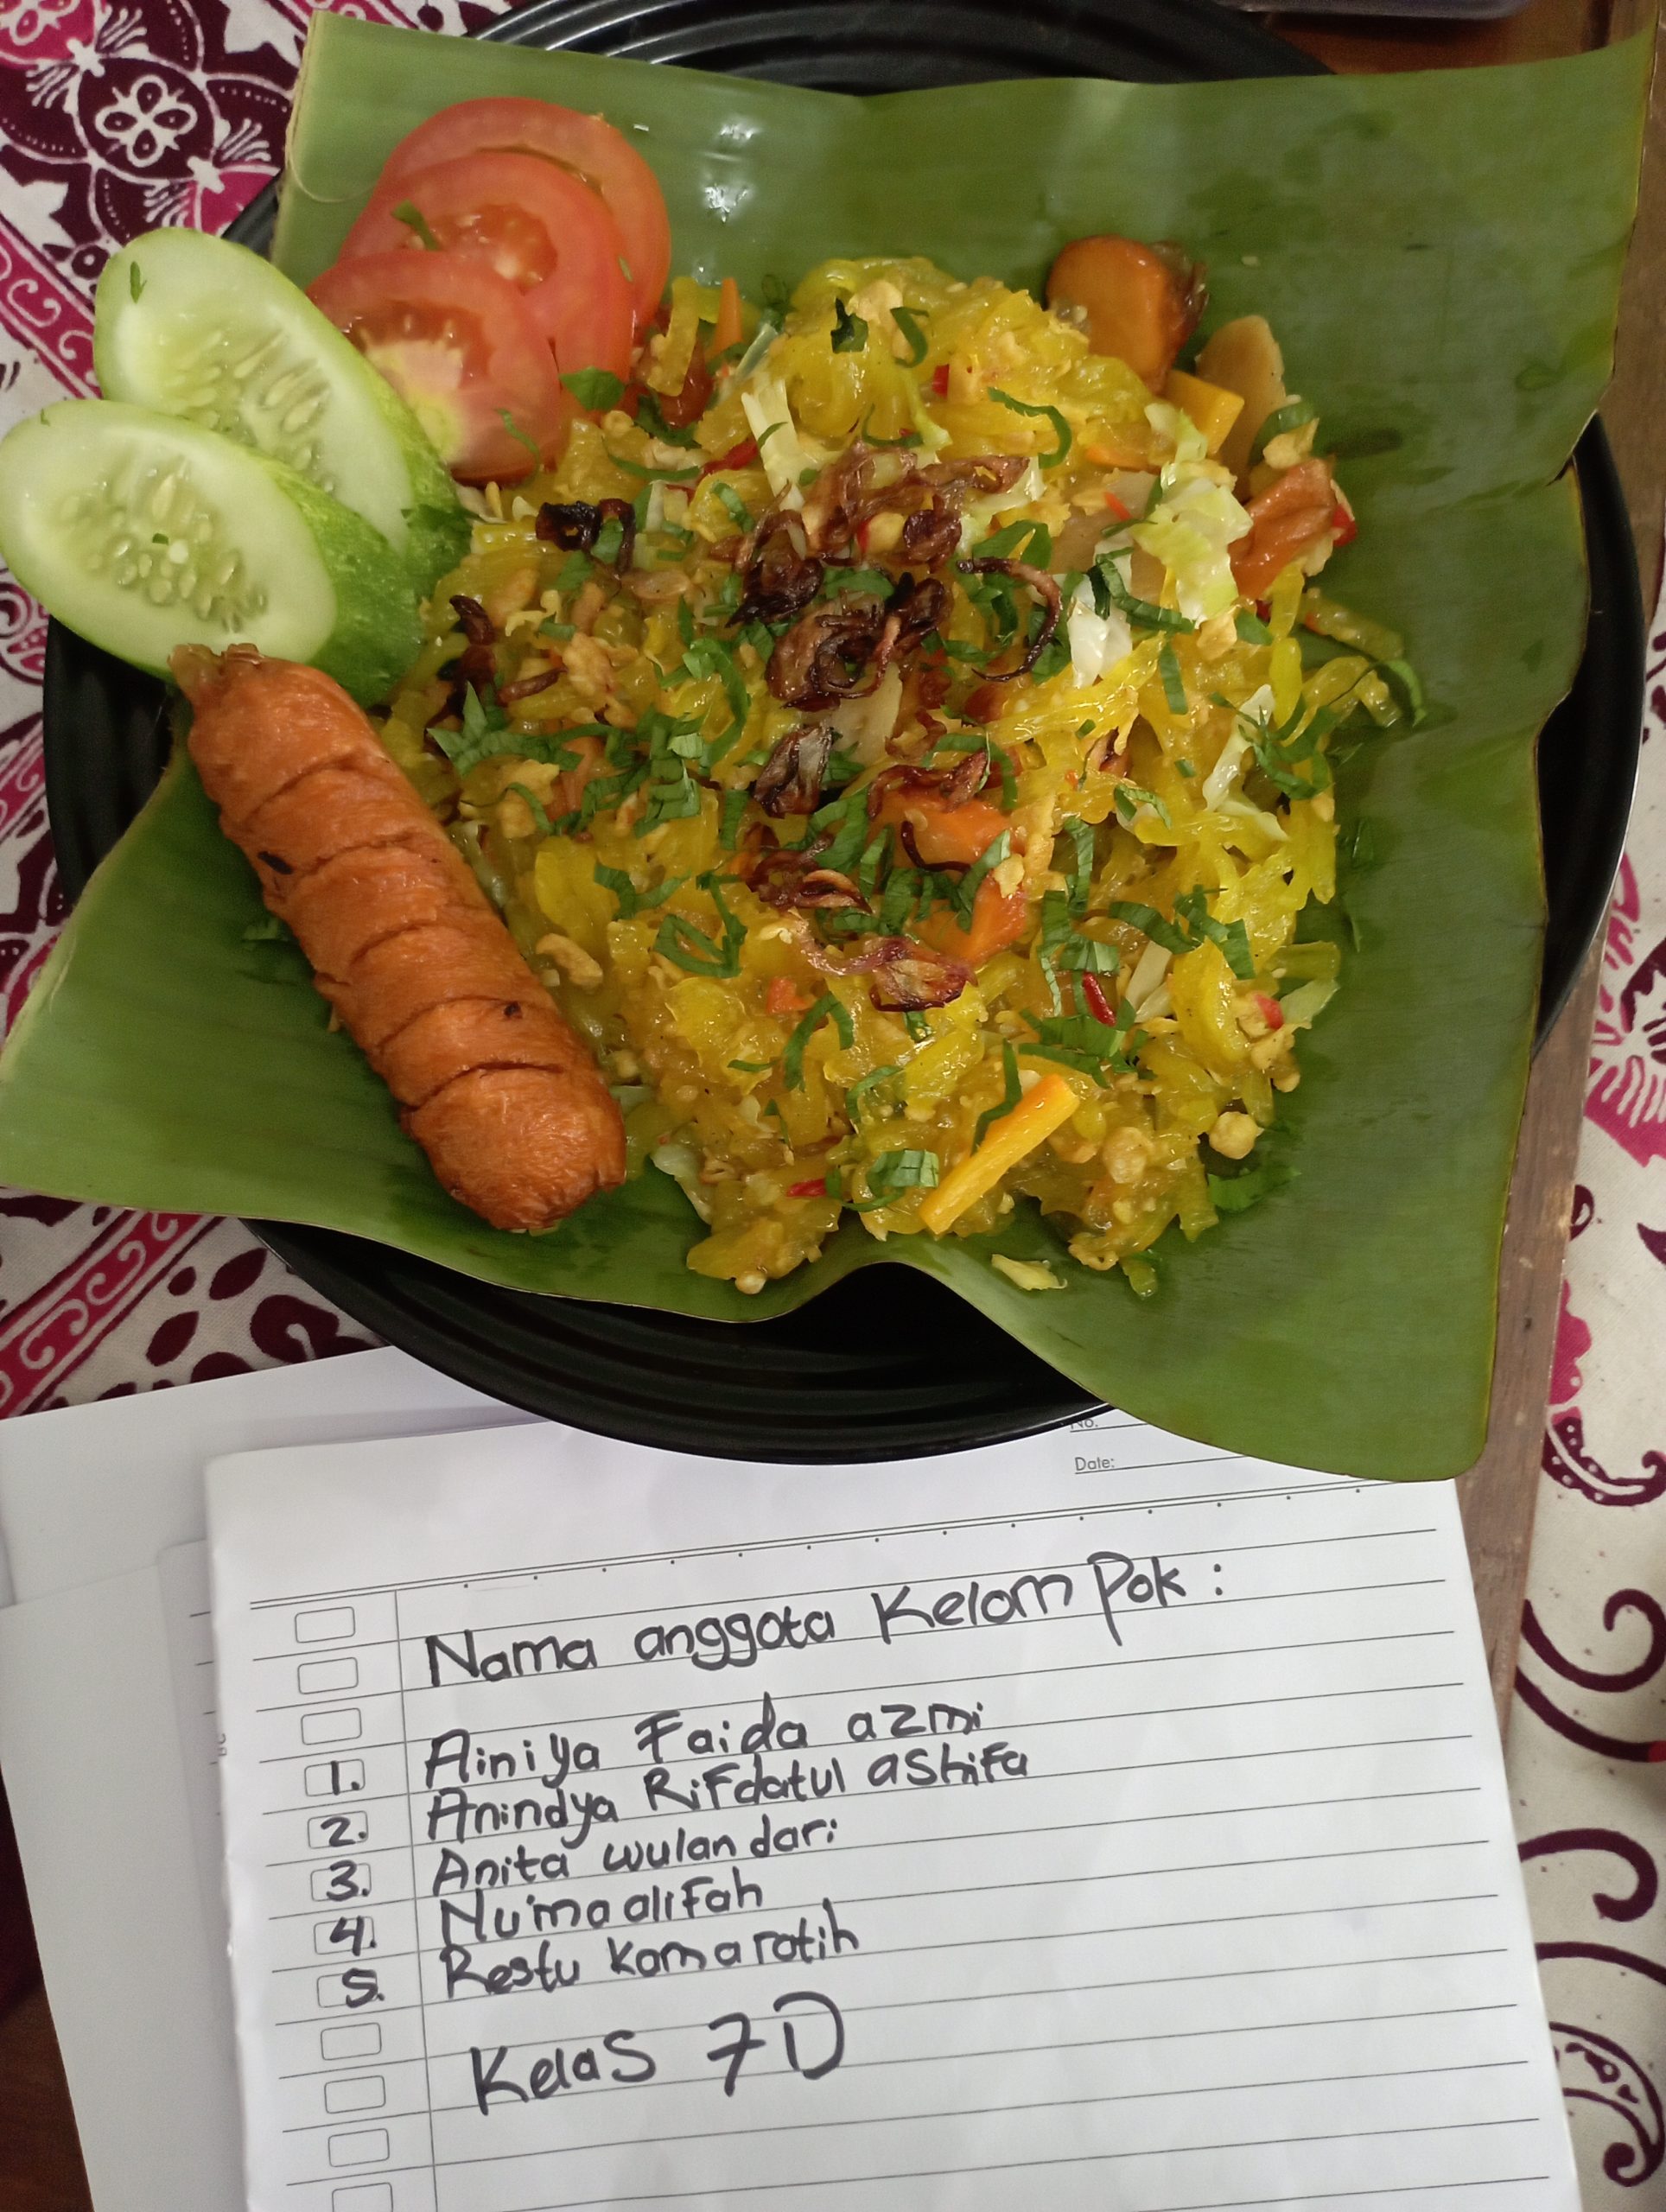 No.
Date:
Nama anggota Kelompok :
1. Ainiya Faida azmi
2. Anindya Rifdatul ashifa
3. Anita wulandari
4. Nu'ma alifah
5. Restu Komaratih
Kelas 7D